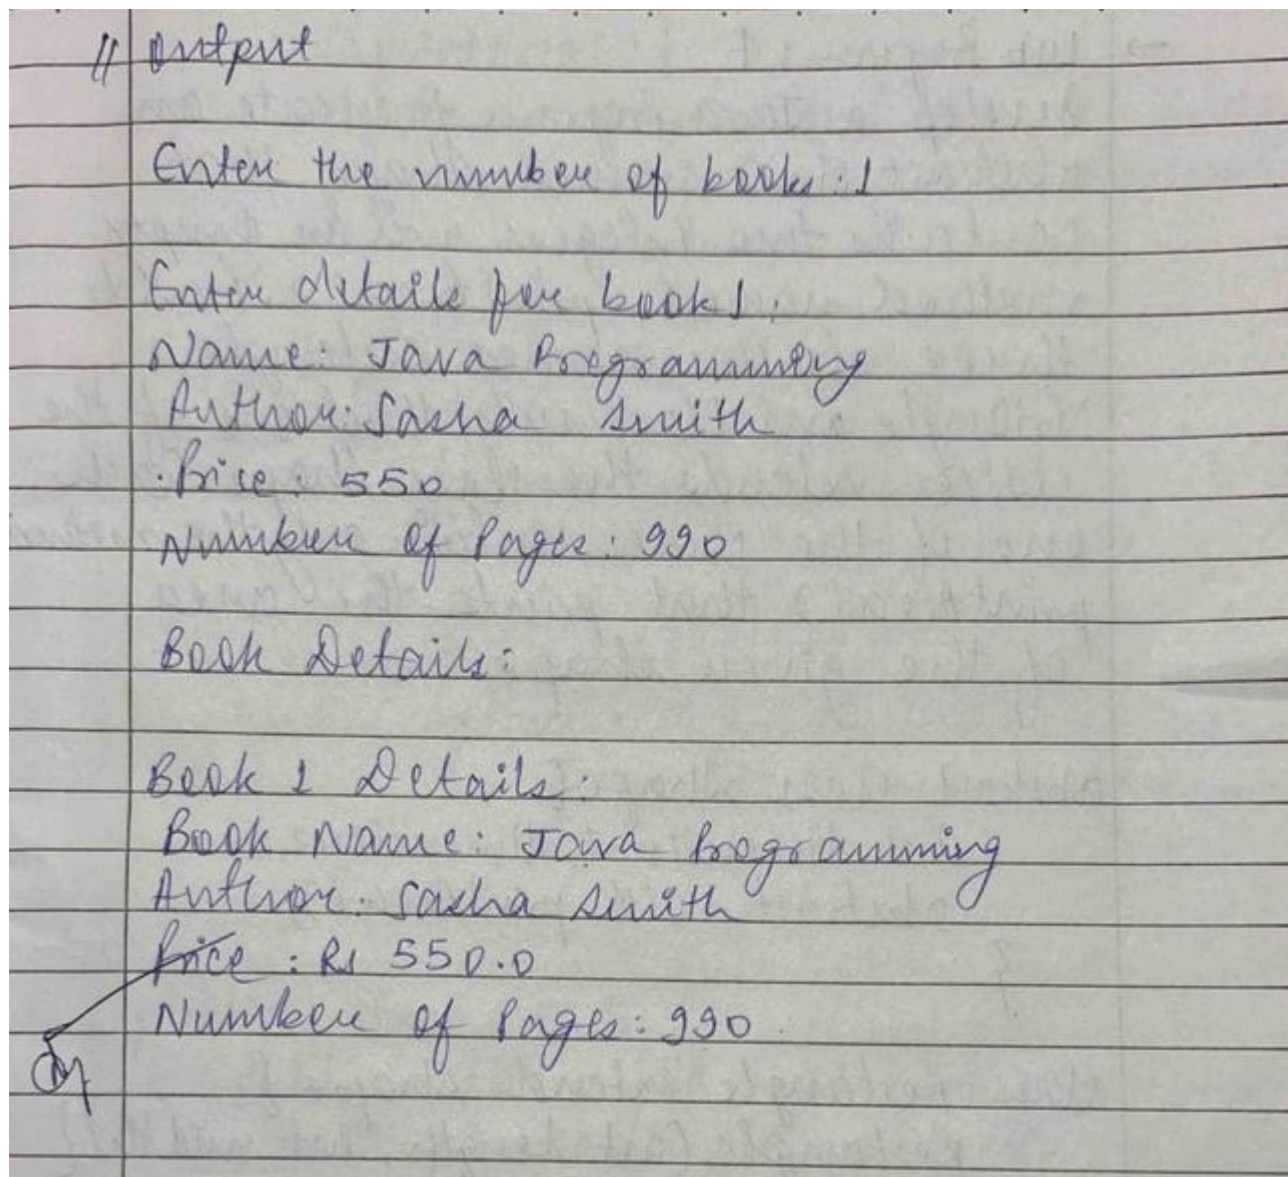 // Output
Enter the number of books: 1
Enter details for book 1:
Name: Java Programming
Author: Sasha Smith
Price: 550
Number of Pages: 990
Book Details:
Book 1 Details:
Book Name: Java Programming
Author: Sasha Smith
Price: Rs 550.0
Number of Pages: 990